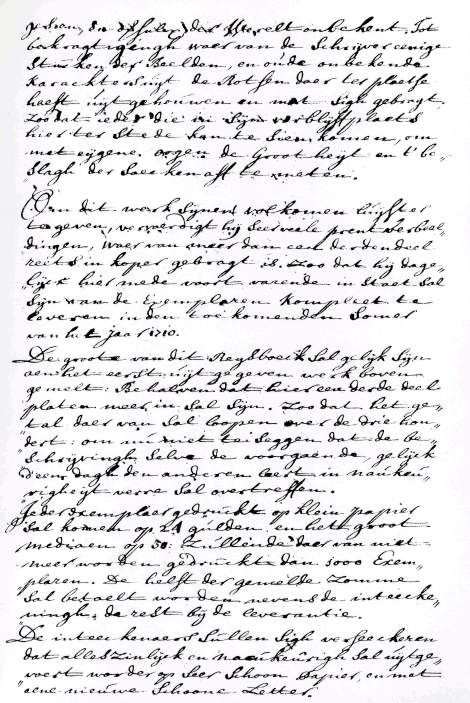 der Werelt onbekent. Tot
bekragtigingh waer van de Schrijver eenige
Stucken der Beelden, en oude onbekende
karackters uijt de Rotsen daer ter plaetse
heeft uijt gehouwen en met sigh gebragt.
Zoo dat ieder die in Sijn verblijfplaets
hier ter Stede kan te sien komen, om
met eijgene oogen de Grootheijt en t' be-
slagh der Saecken aff te meten.
Om dit werk Sijnen volkomen luijster
te geven, vervaerdigt hij Seer veele prent verbeel-
dingen, waer van meer dan een derdendeel
reets in koper gebragt is. Zoo dat hij dage-
lijck hier mede voort varende in staet Sal
Sijn van de Exemplaren kompleet te
leveren in den toekomenden Somer
van het jaar 1710.
De groote van dit Reijsboeck Sal gelijk Sijn
aen het eerst uijt gegeven werk boven
gemelt: Behalven dat hier een derde deel
platen meer in Sal Sijn. Zoo dat het ge-
tal daer van Sal loopen over de drie hon-
dert: om nu niet te Seggen dat de be-
schrijvingh Selve de voorgaende, gelijck
d'eene dagh den anderen leert in naukeu-
righeijt verre Sal overtreffen.
Ieder Exemplaer gedruckt op klein papier
Sal komen op 24 gulden, en het groot
mediaen op 30: Zullende daer van niet
meer worden gedruckt dan 1000 Exem-
plaren. De helft der gemelde Zomme
Sal betaelt worden nevens de inteecke-
ningh, de rest bij de leverantie.
De inteeckenaers Sullen Sigh verseeckeren
dat alles Zinlijck en naeukeurigh Sal uijtge-
voert worden op Seer Schoon papier, en met
eene nieuwe Schoone Letter.